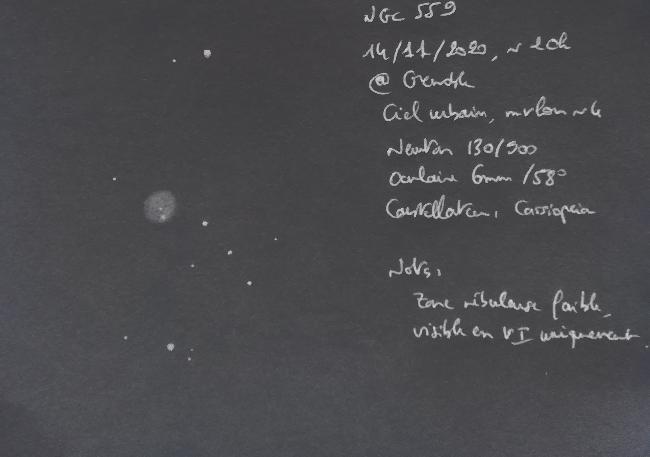 NGC 559
14/11/2020, ~ 20h
@ Grenoble
Ciel urbain, mvlon ~4
Newton 130/900
Oculaire 6mm /58°
Constellation, Cassiopeia
Nots,
Zone nébuleuse faible,
visible en VI uniquement